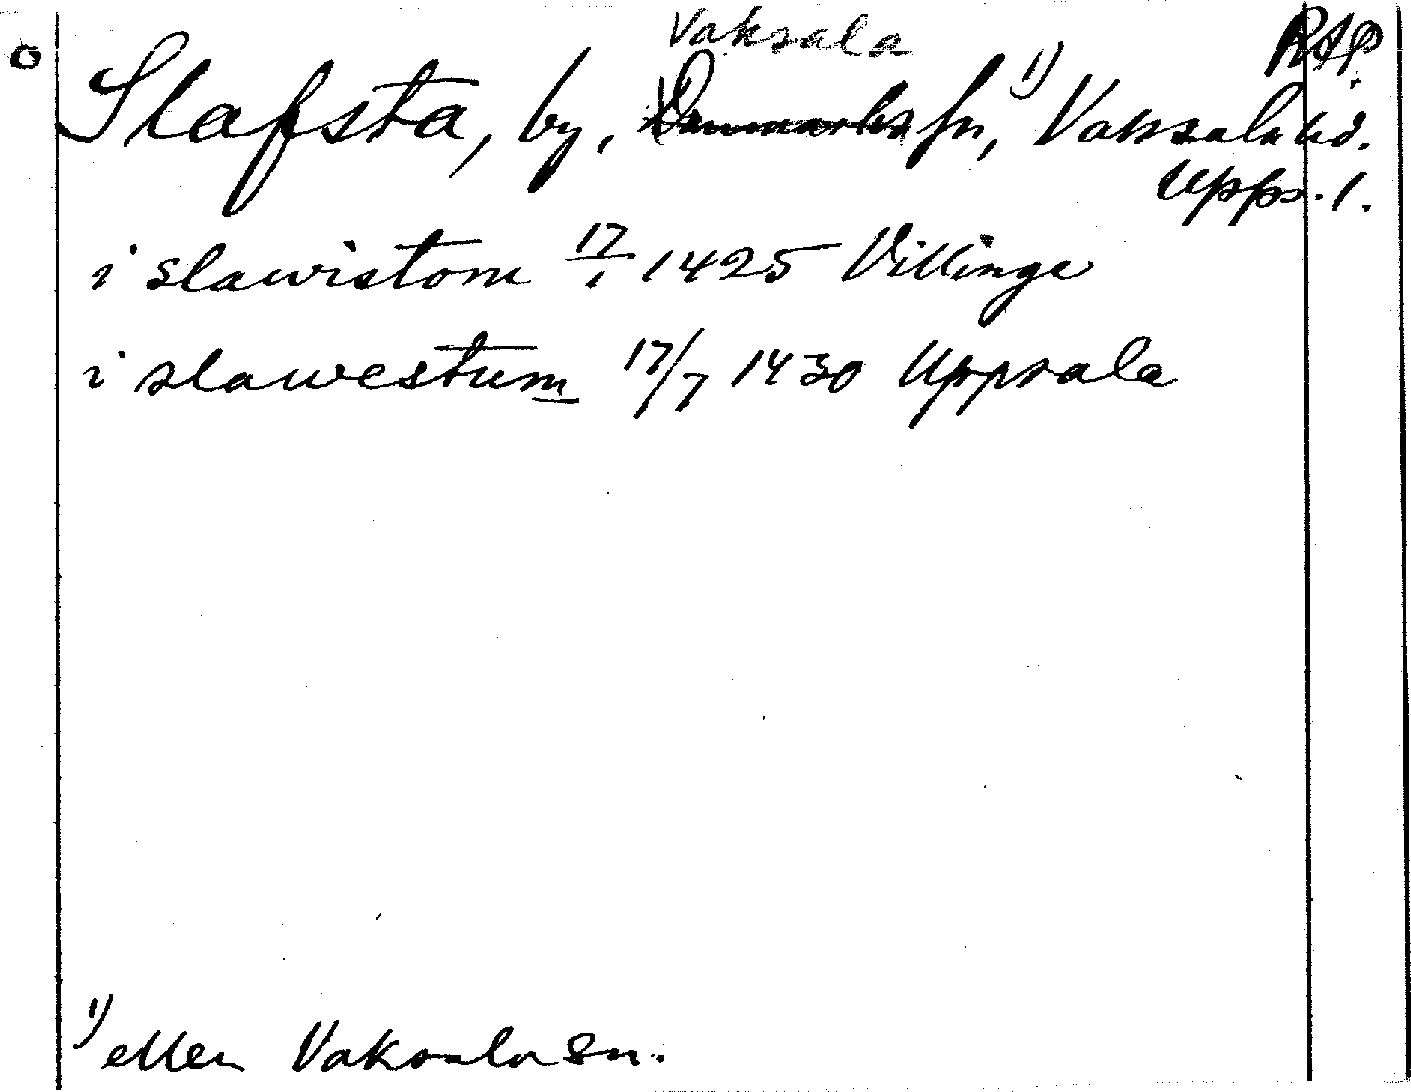 Vaksala RAP.
o Slafsta, by, Danmarks sn, 1) Vaksala hd.
Upps. l.
i slawistom 17/1 1425 Villinge
i slawestum 17/7 1430 Uppsala
1) eller Vaksala sn.